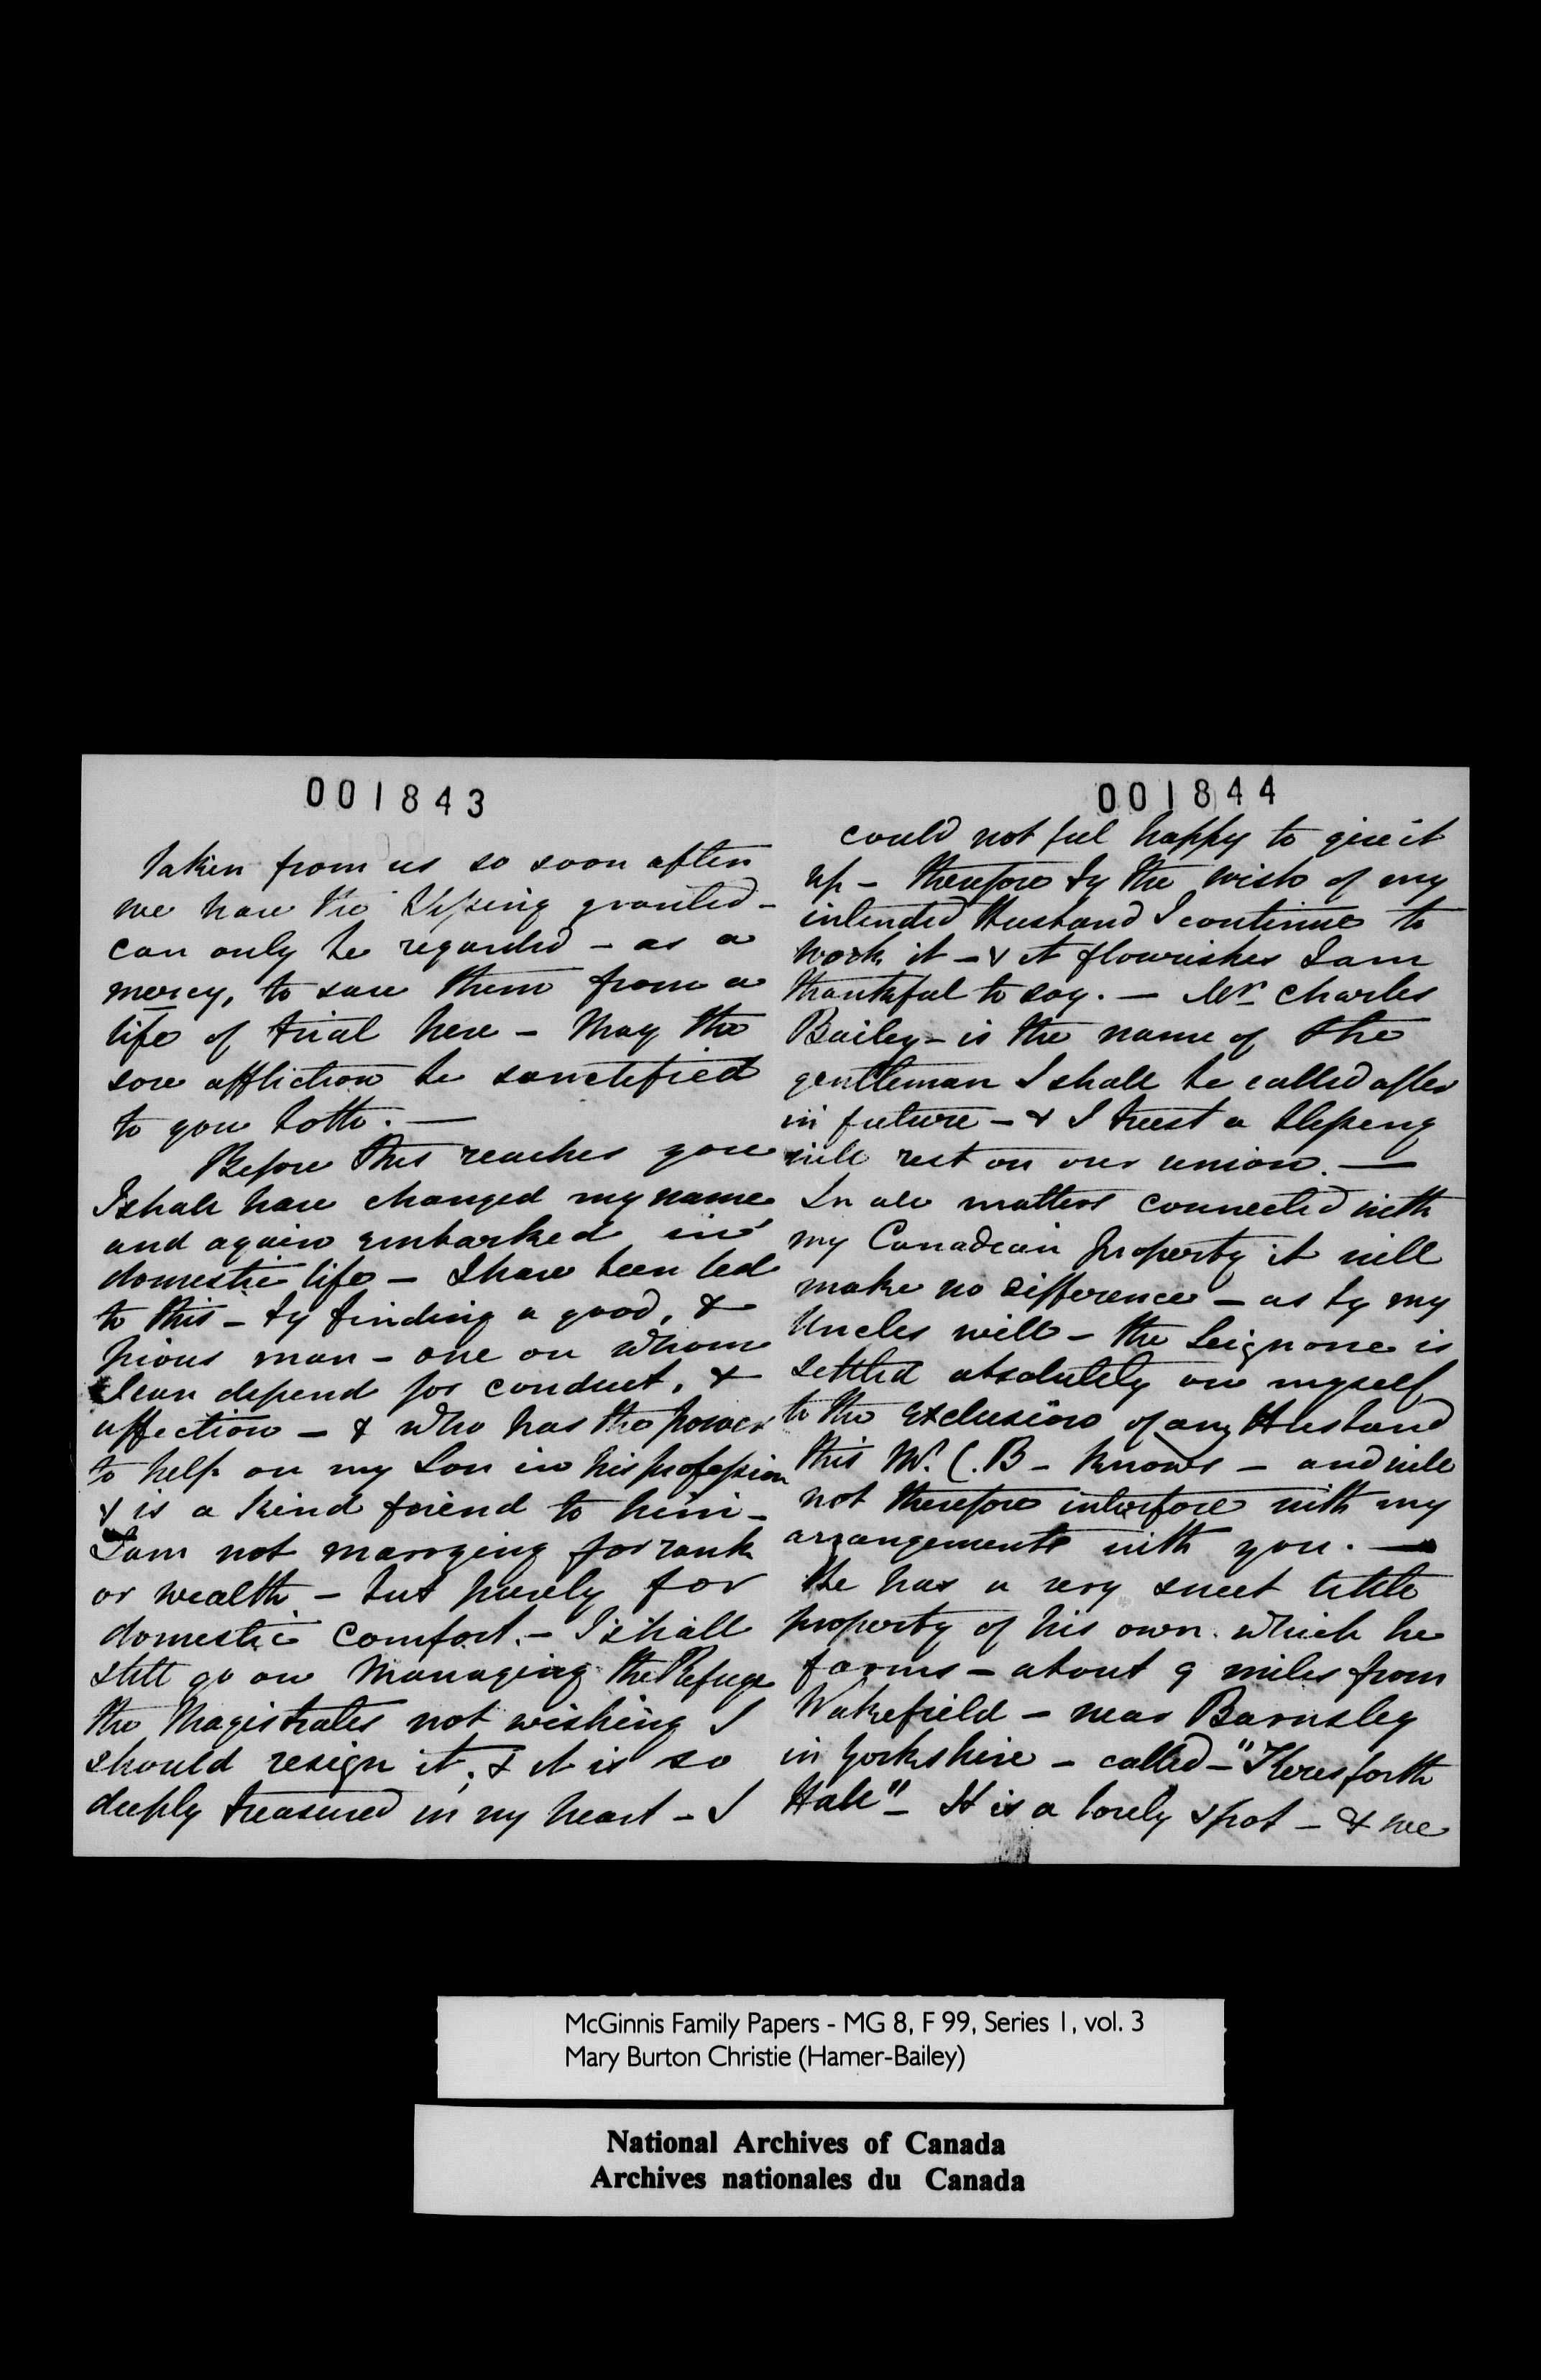 001843
taken from us so soon after
we have the blessing granted -
can only be regarded - as a
mercy, to save them from a
life of trial here - May the
sore affliction be sanctified
to you both. —
Before this reaches you
I shall have changed my name
and again embarked in
domestic life - I have been led
to this - by finding a good, &
pious man - one on whom
I can depend for conduct, &
affection - & who has the power
to help on my Son in his profession
& is a kind friend to him -
I am not marrying for rank
or wealth - but purely for
domestic comfort. - I shall
still go on managing the Refuge
the Magistrates not wishing I
should resign it, & it is so
deeply treasured in my heart - I
001844
could not feel happy to give it
up - therefore by the wish of my
intended Husband I continue to
work it - & it flourishes I am
thankful to say. — Mr Charles
Bailey - is the name of the
gentleman I shall be called after
in future - & I trust a blessing
will rest on our union. —
In all matters connected with
my Canadian property it will
make no difference - as by my
Uncles will - the Seignorie is
settled absolutely on myself
to the exclusion of any Husband
this Mr. C. B - knows - and will
not therefore interfere with my
arrangements with you. —
He has a very sweet little
property of his own which he
farms - about 9 miles from
Wakefield - near Barnsley
in Yorkshire - called - "Keresforth
Hall" - It is a lovely spot - & we
McGinnis Family Papers - MG 8, F 99, Series 1, vol. 3
Mary Burton Christie (Hamer-Bailey)
National Archives of Canada
Archives nationales du Canada